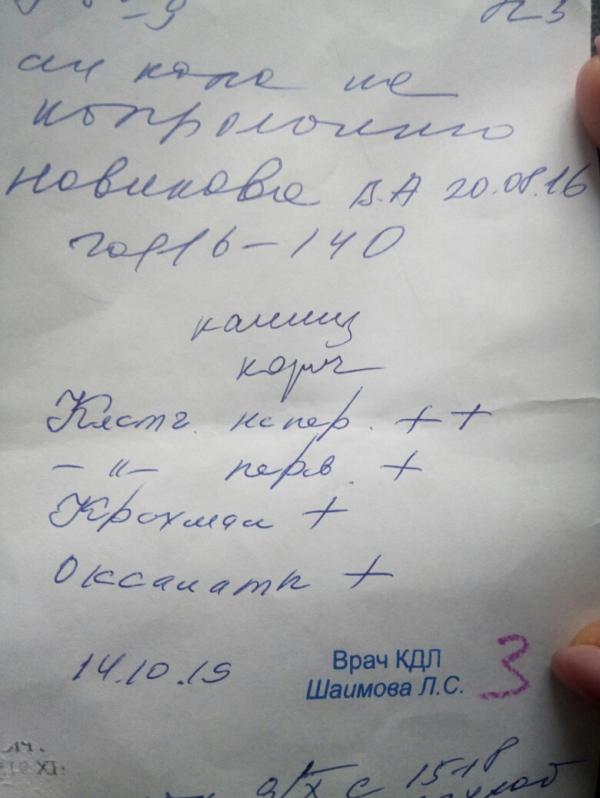 ан кала на
копрологию
Новикова В.А 20.08.16
140
кашиц
корич
Клетч. непер. ++
– " – перев. +
Крохмал +
Оксалаты +
14.10.19
Врач КДЛ
Шаимова Л.С.
3
с 1518